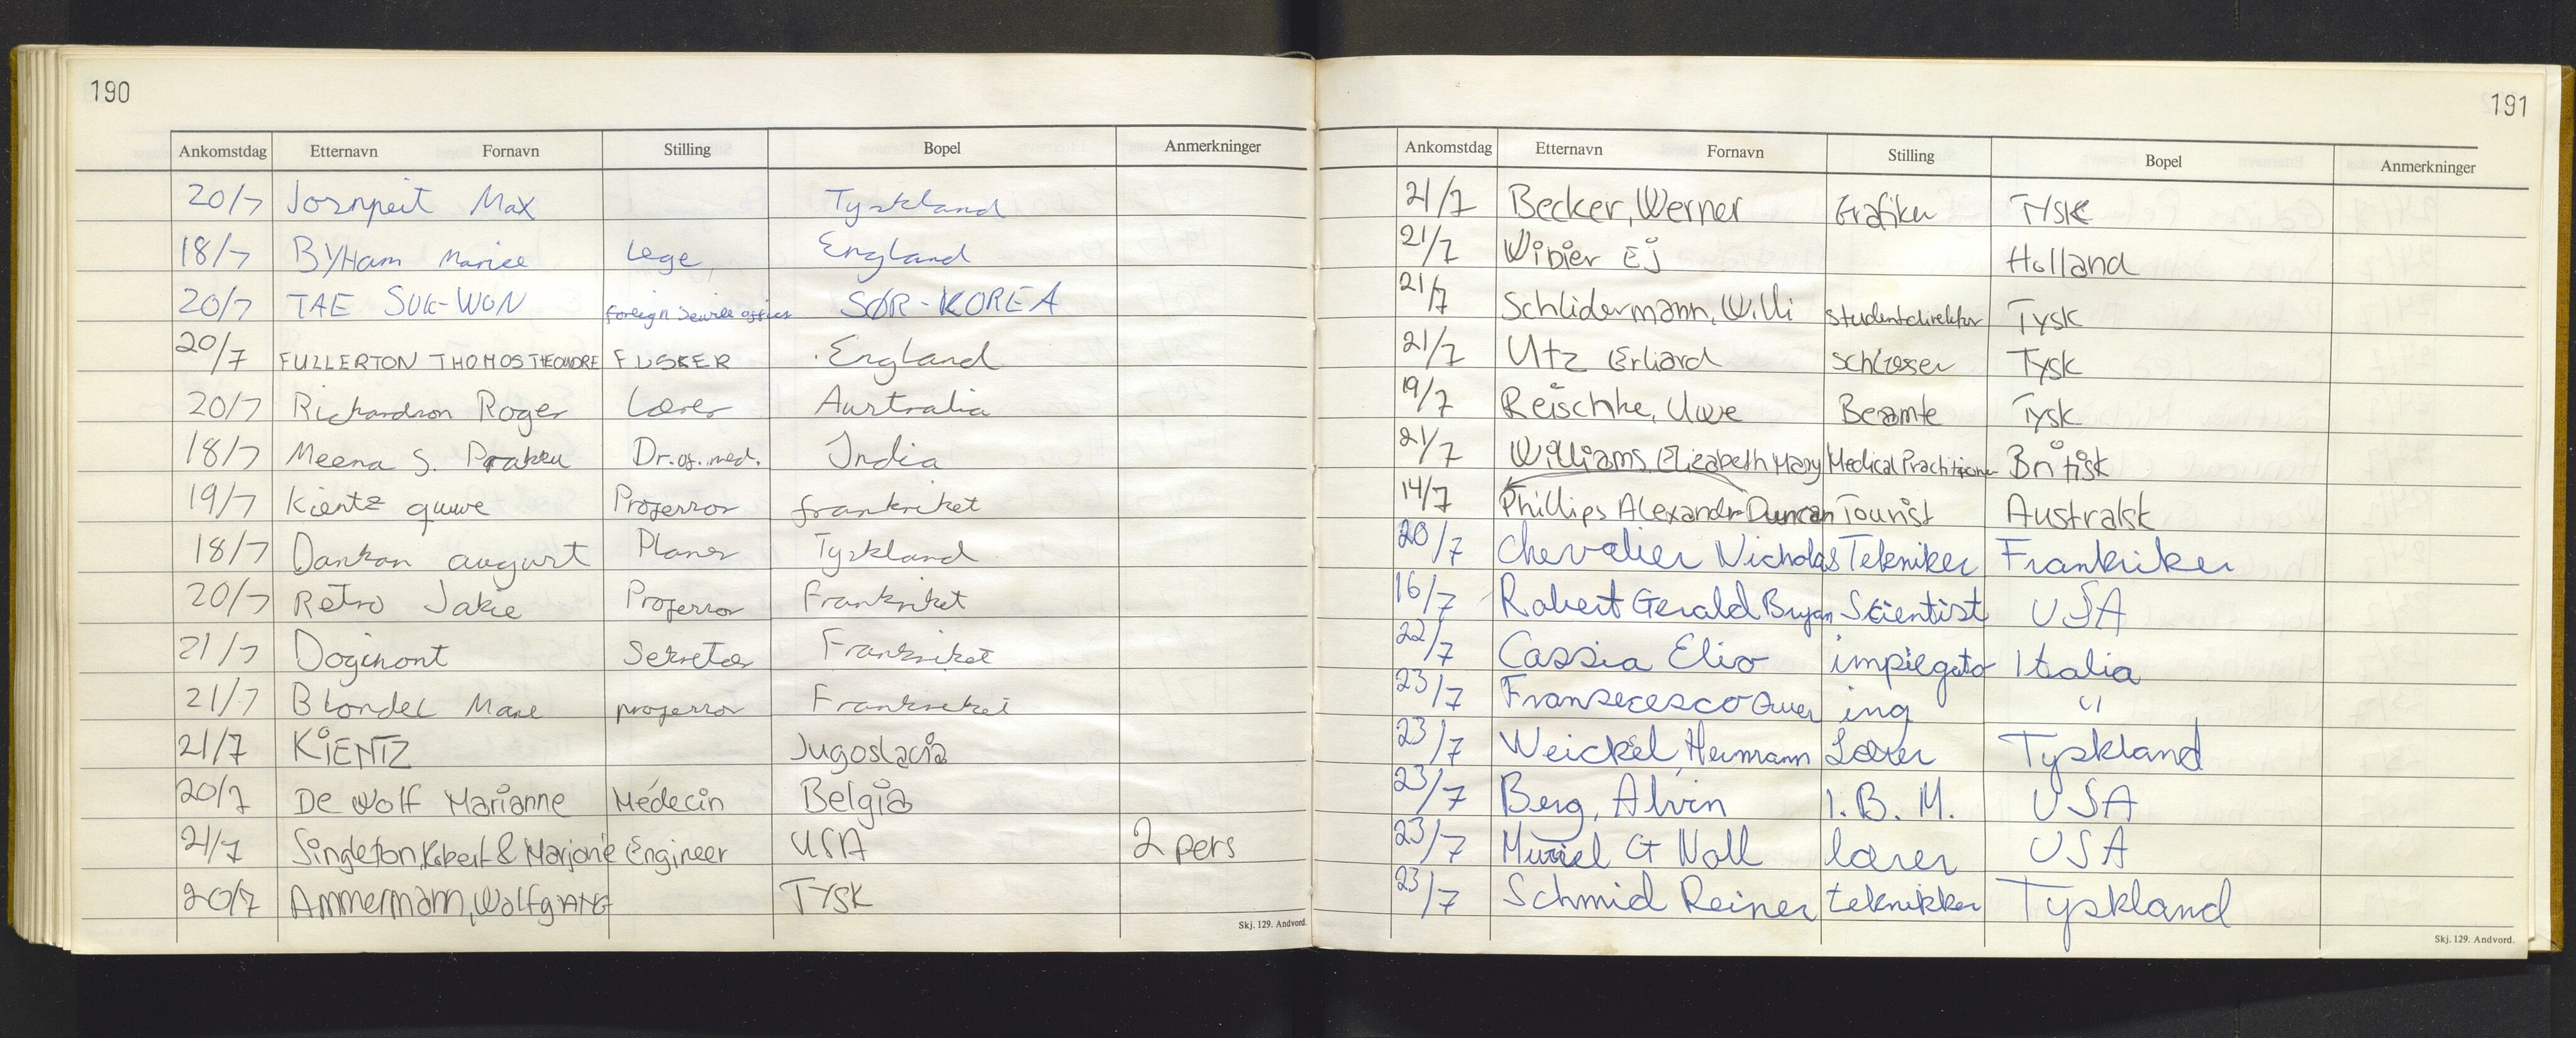 190
Ankomstdag Etternavn Fornavn Stilling Bopel Anmerkninger
20/7 Max Tyskland
18/7 BYHam Lege England
20/7 TAE SUK-WON foreign service SØR-KOREA
20/7 FULLERTON THOMOS England
20/7 Richardson Roger Lærer Australia
18/7 Meena S. Dr. of. med. India
19/7 Kientz Professor frankriket
18/7 august Planer Tyskland
20/7 Retro Jakie Professor Frankriket
21/7 Doginont Sekretær Frankriket
21/7 Blondel professor Frankriket
21/7 KIENTZ Jugoslavia
20/7 De Wolf Marianne Médecin Belgia
21/7 Singleton, Robert & Marjorie Engineer USA 2 pers
20/7 Ammermann, WolfgANG TYSK
Skj. 129. Andvord.
191
Ankomstdag Etternavn Fornavn Stilling Bopel Anmerkninger
21/7 Becker, Werner Grafiker TYSK
21/7 Wibier EJ Holland
21/7 Schlidermann, Willi Studentdirektør Tysk
21/7 Utz Erhard Schlosser Tysk
19/7 Reischke, Uwe Beamte Tysk
21/7 Williams Elizabeth Mary Medical Practitioner Britisk
14/7 Phillips Alexandr Duncan Tourist Australsk
20/7 Chevalier Nicholas Tekniker Frankriker
16/7 Robert Gerald Bryan Scientist USA
22/7 Cassia Elio impiegato Italia
23/7 ing "
23/7 Weickel, Hermann Lærer Tyskland
23/7 Berg, Alvin I.B.M. USA
23/7 Muriel G Noll lærer USA
23/7 Schmid Reiner teknikker Tyskland
Skj. 129. Andvord.